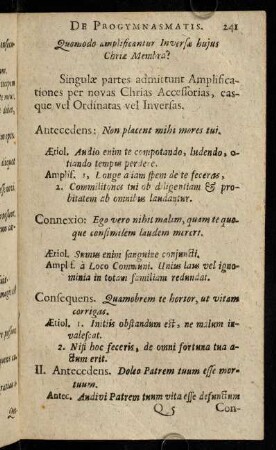 DE PROGYMNASMATIS. 241
Quomodo amplificantur Inversæ hujus
Chriæ Membra?
Singulæ partes admittunt Amplifica-
tiones per novas Chrias Accessorias, eas-
que vel Ordinatas vel Inversas.
Antecedens: Non placent mihi mores tui.
Ætiol. Audio enim te compotando, ludendo, o-
tiando tempus perdere.
Amplif. 1, Longe aliam spem de te feceras,
2. Commilitones tui ob diligentiam & pro-
bitatem ab omnibus laudantur.
Connexio: Ego vero nihil malim, quam te quo-
que consimilem laudem mereri.
Ætiol. Sumus enim sanguine conjuncti.
Amplif. à Loco Communi. Unius laus vel igno-
minia in totam familiam redundat.
Consequens. Quamobrem te hortor, ut vitam
corrigas.
Ætiol. 1. Initiis obstandum est, ne malum in-
valescat.
2. Nisi hoc feceris, de omni fortuna tua a-
ctum erit.
II. Antecedens. Doleo Patrem tuum esse mor-
tuum.
Antec. Audivi Patrem tuum vita esse defunctum
Q 5 Con-